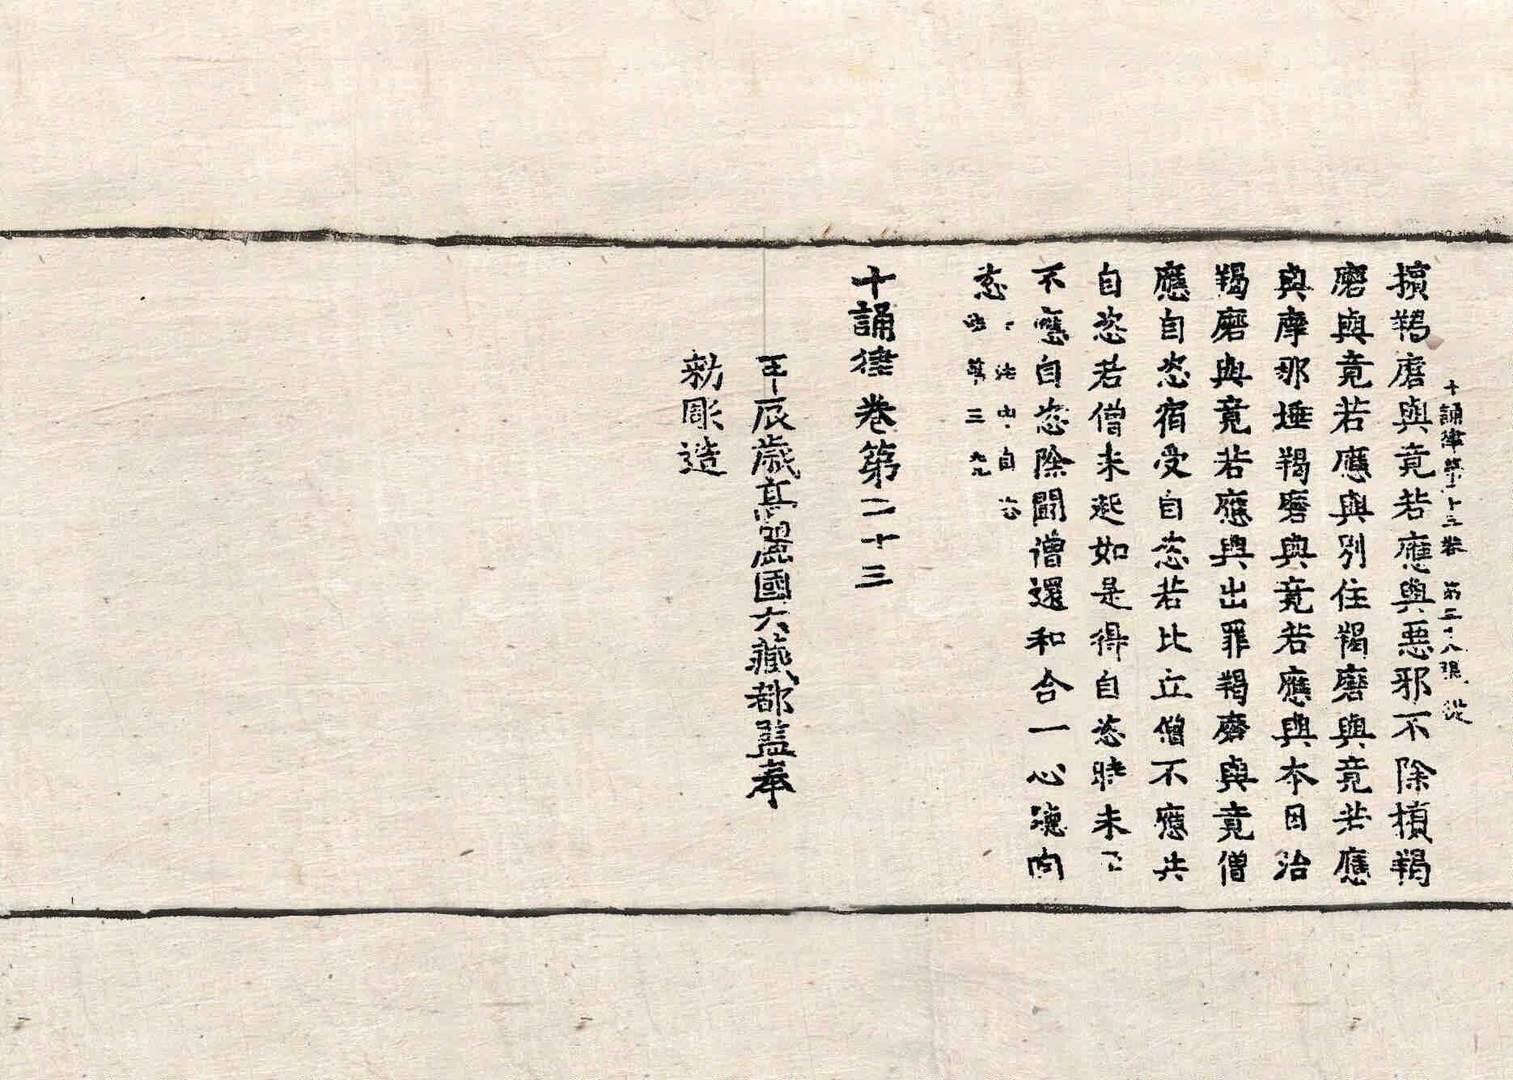 十誦律第二十三卷 第三十八張 從
擯羯磨與竟若應與惡邪不除擯羯
磨與竟若應與別住羯磨與竟若應
與摩那埵羯磨與竟若應與本日治
羯磨與竟若應與出罪羯磨與竟僧
應自恣宿受自恣若比丘僧不應共
自恣若僧未起如是得自恣時未
不應自恣除鬪僧還和合一心
恣
法中自恣
第三
十誦律卷第二十三
壬辰歲高麗國大藏都監奉
勑彫造